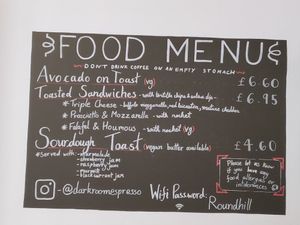 FOOD MENU
DON'T DRINK COFFEE ON AN EMPTY STOMACH
Avocado on Toast (vg) £6.60
Toasted Sandwiches - with tortilla chips & salsa dip - £6.95
* Triple Cheese - buffalo mozzarella, red leicester, mature cheddar
* Prosciutto & Mozzarella - with rocket
* Falafel & Houmous - with rocket (vg)
Sourdough Toast (vegan butter available) £4.60
*Served with: - marmalade
- strawberry jam
- raspberry jam
- marmite
- blackcurrant jam
Please let us know
if you have any
food allergies or
intolerances
@darkroomespresso
Wifi Password:
Roundhill